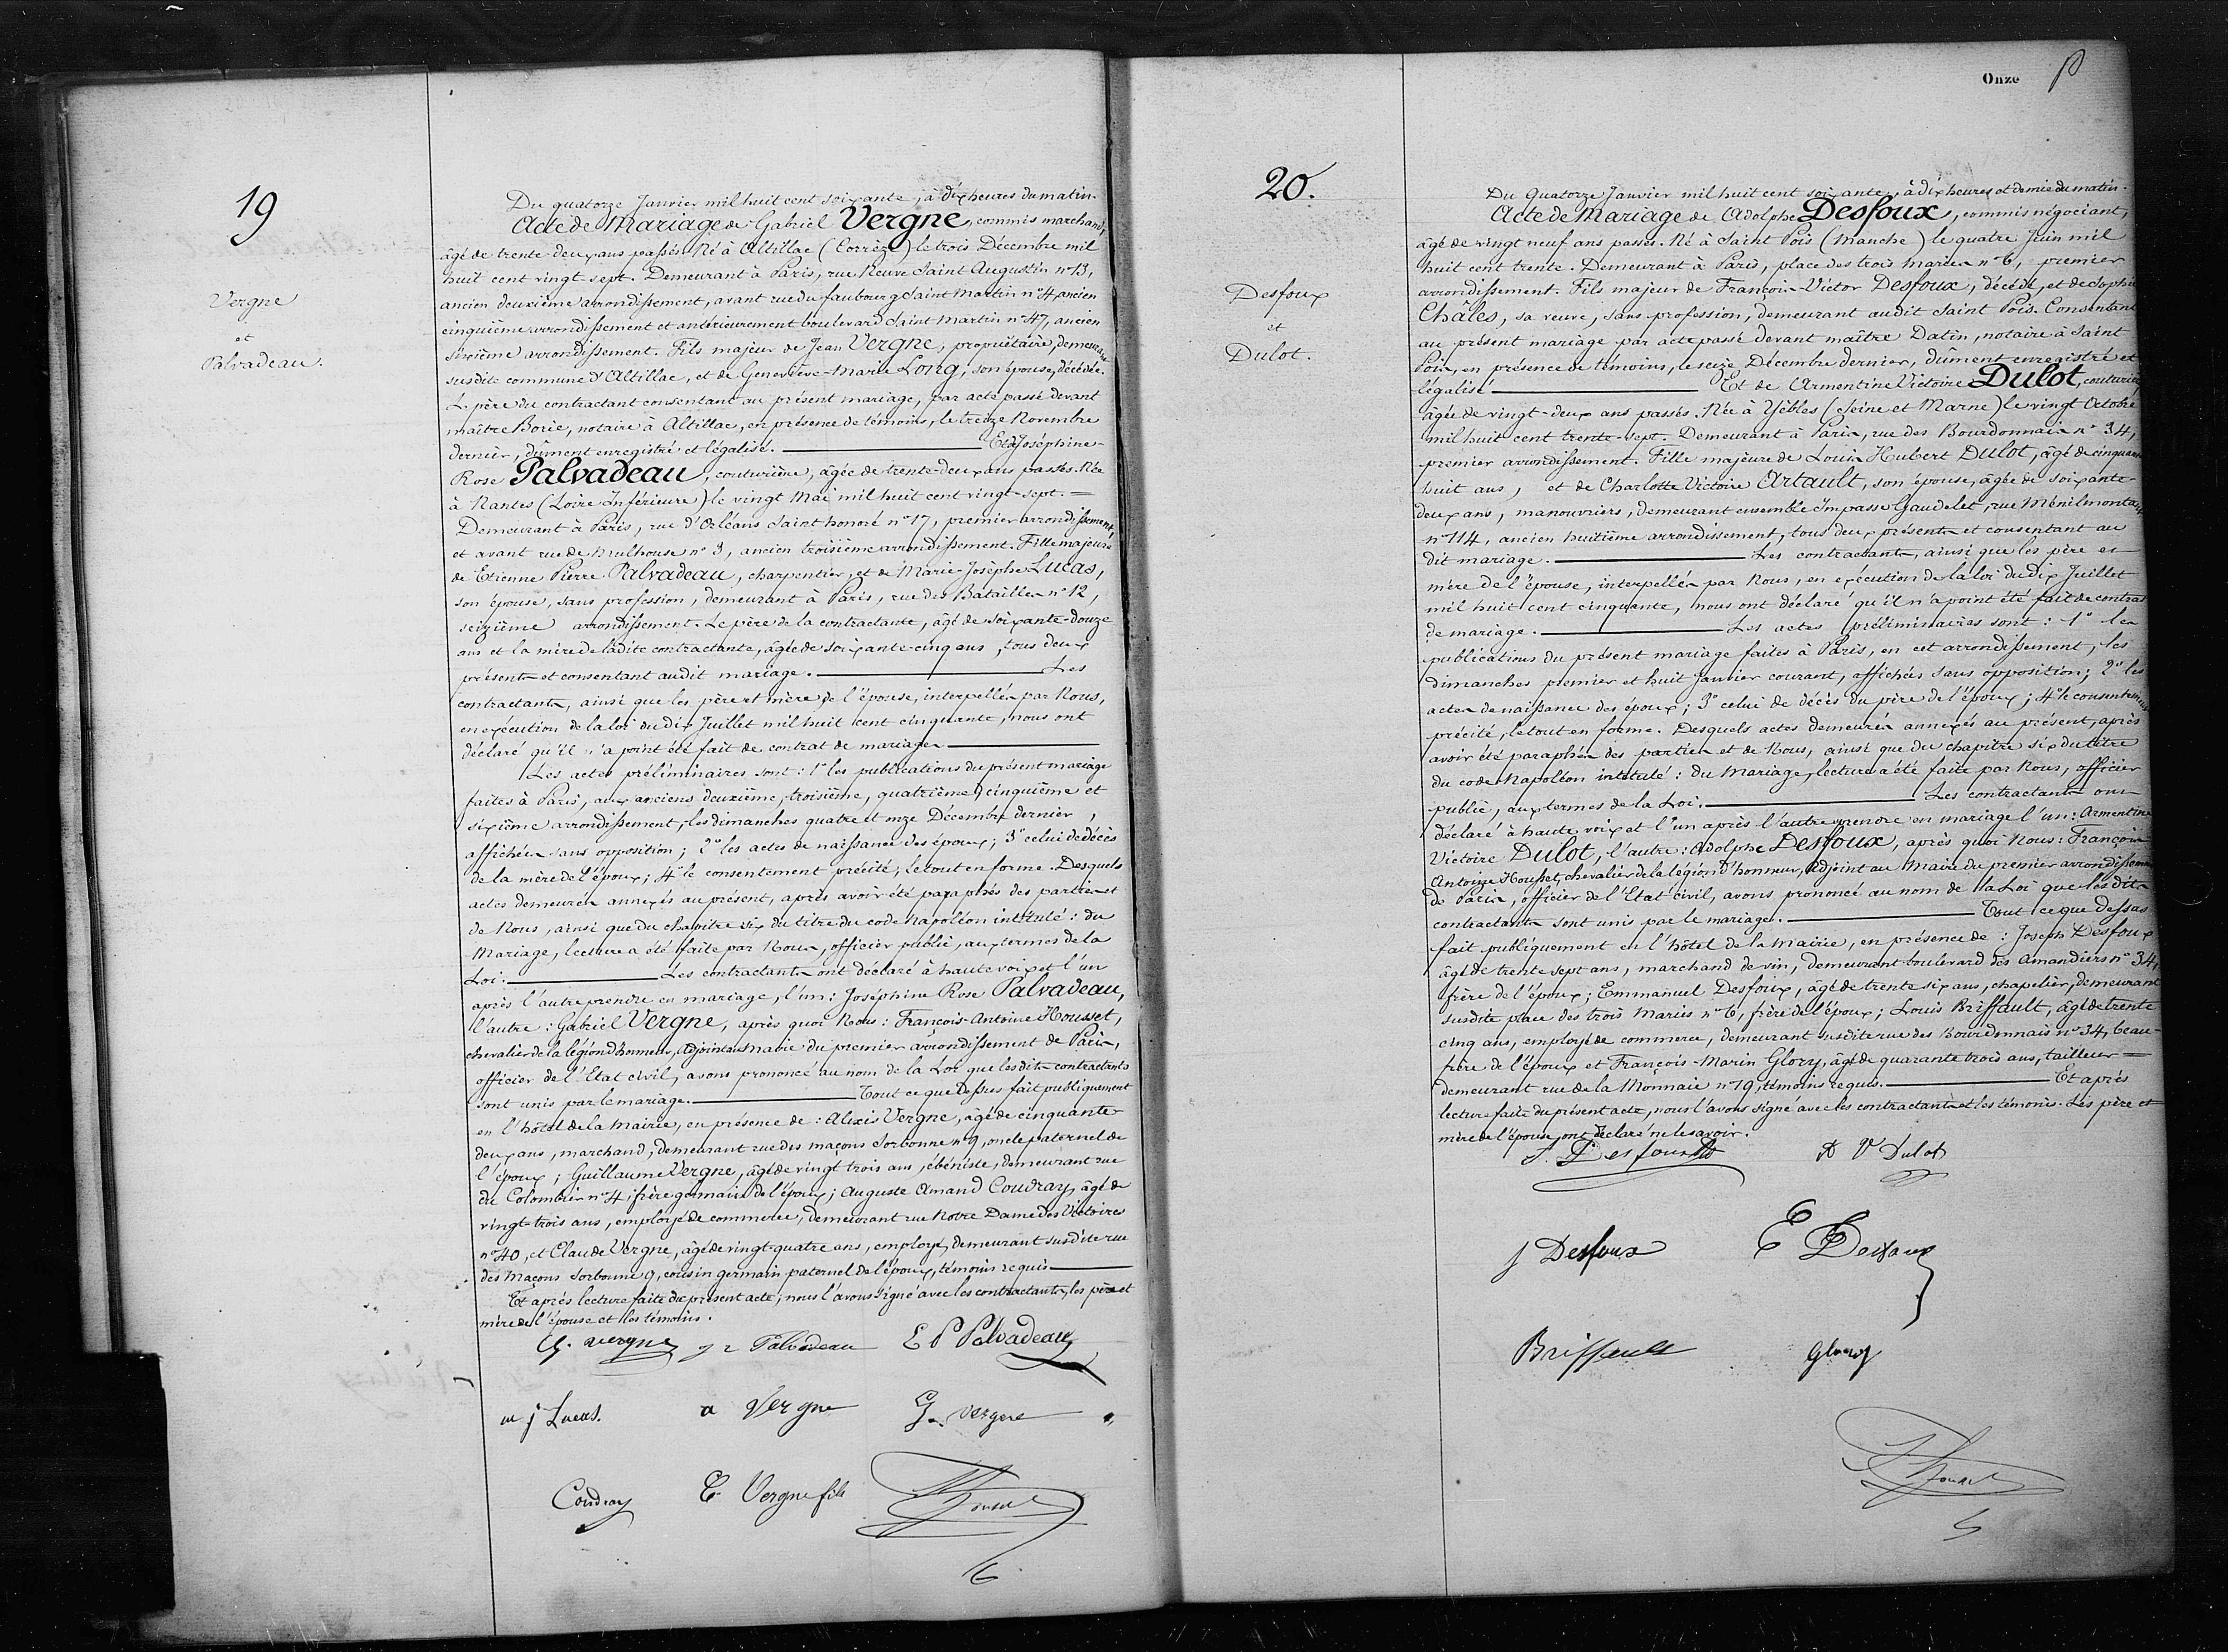 19
Vergne
et
Palvadeau.
Du quatorze Janvier mil huit cent soixante, à dix heures du matin.
Acte de Mariage de Gabriel Vergne, commis marchand,
âgé de trente-deux ans passés. Né à Altillac (Corrèze) le trois Décembre mil
huit cent vingt-sept. Demeurant à Paris, rue Neuve Saint Augustin nº 13,
ancien deuxième arrondissement, avant rue du faubourg Saint Martin nº 4, ancien
cinquième arrondissement et antérieurement boulevard Saint Martin nº 47, ancien
sixième arrondissement. Fils majeur de Jean Vergne, propriétaire, demeurant
susdite commune d'Altillac, et de Geneviève-Marie Long, son épouse, décédée.
Le père du contractant consentant au présent mariage, par acte passé devant
maître Borie, notaire à Altillac, en présence de témoins, le treize Novembre
dernier, dûment enregistré et légalisé. Et de Joséphine-
Rose Palvadeau, couturière, âgée de trente-deux ans passés. Née
à Nantes (Loire Inférieure) le vingt Mai mil huit cent vingt-sept. =
Demeurant à Paris, rue d'Orléans Saint honoré nº 17, premier arrondissement,
et avant rue de Mulhouse nº 3, ancien troisième arrondissement. Fille majeure
de Etienne Pierre Palvadeau, charpentier, et de Marie-Josèphe Lucas,
son épouse, sans profession, demeurant à Paris, rue des Batailles nº 12,
seizième arrondissement. Le père de la contractante, âgé de soixante-douze
ans et la mère de ladite contractante, âgée de soixante-cinq ans, tous deux
présents et consentant audit mariage. Les
contractants, ainsi que les père et mère de l'épouse, interpellés par Nous,
en exécution de la loi du dix Juillet mil huit cent cinquante, nous ont
déclaré qu'il n'a point été fait de contrat de mariage.
Les actes préliminaires sont : 1º les publications du présent mariage
faites à Paris, aux anciens deuxième, troisième, quatrième, cinquième et
sixième arrondissement, les dimanches quatre et onze Décembre dernier,
affichées sans opposition; 2º les actes de naissance des époux; 3º celui de décès
de la mère de l'époux; 4º le consentement précité; le tout en forme. Desquels
actes demeurés annexés au présent, après avoir été paraphés des parties et
de Nous, ainsi que du chapitre six du titre du code Napoléon intitulé : du
Mariage, lecture a été faite par Nous, officier public, aux termes de la
Loi. Les contractants ont déclaré à haute voix et l'un
après l'autre prendre en mariage, l'un : Joséphine Rose Palvadeau,
l'autre : Gabriel Vergne, après quoi Nous : François-Antoine Housset,
chevalier de la légion d'honneur, Adjoint au Maire du premier arrondissement de Paris,
officier de l'Etat civil, avons prononcé au nom de la Loi que lesdits contractants
sont unis par le mariage. Tout ce que dessus fait publiquement
en l'hôtel de la Mairie, en présence de : Alexis Vergne, âgé de cinquante-
deux ans, marchand, demeurant rue des maçons Sorbonne nº 9, oncle paternel de
l'époux; Guillaume Vergne, âgé de vingt trois ans, ébéniste, demeurant rue
du Colombier nº 4, frère germain de l'époux; Auguste Amand Coudray, âgé de
vingt-trois ans, employé de commerce, demeurant rue Notre Dame des Victoires
nº 40, et Claude Vergne, âgé de vingt-quatre ans, employé, demeurant susdite rue
des Maçons Sorbonne 9, cousin germain paternel de l'époux, témoins requis
Et après lecture faite du présent acte, nous l'avons signé avec les contractants, les père et
mère de l'épouse et les témoins.
G. vergne j r Palvadeau E P Palvadeau
m j Lucas. a Vergne G. vergne
Coudray C. Vergne fils Housset
Onze
20.
Desfoux
et
Dulot.
Du Quatorze Janvier mil huit cent soixante, à dix heures et demie du matin.
Acte de Mariage de Adolphe Desfoux, commis négociant,
âgé de vingt neuf ans passés. Né à Saint Pois (Manche) le quatre Juin mil
huit cent trente. Demeurant à Paris, place des trois Maries nº 6, premier
arrondissement. Fils majeur de François-Victor Desfoux, décédé, et de Sophie
Châles, sa veuve, sans profession, demeurant audit Saint Pois. Consentant
au présent mariage par acte passé devant maître Datin, notaire à Saint
Pois, en présence de témoins, le seize Décembre dernier, dûment enregistré et
légalisé Et de Armentine Victoire Dulot, couturière
âgée de vingt-deux ans passés. Née à Yèbles (Seine et Marne) le vingt Octobre
mil huit cent trente-sept. Demeurant à Paris, rue des Bourdonnais nº 34,
premier arrondissement. Fille majeure de Louis Hubert Dulot, âgé de cinquante
huit ans, et de Charlotte Victoire Artault, son épouse, âgée de soixante-
deux ans, manouvriers, demeurant ensemble impasse Gaudelet, rue Ménilmontant
nº 114, ancien huitième arrondissement, tous deux présents et consentant au
dit mariage. Les contractants, ainsi que les père et
mère de l'épouse, interpellés par Nous, en exécution de la loi du dix Juillet
mil huit cent cinquante, nous ont déclaré qu'il n'a point été fait de contrat
de mariage. Les actes préliminaires sont : 1º les
publications du présent mariage faites à Paris, en cet arrondissement, les
dimanches premier et huit Janvier courant, affichées sans opposition; 2º les
actes de naissance des époux; 3º celui de décès du père de l'époux; 4º le consentement
précité, le tout en forme. Desquels actes demeurés annexés au présent, après
avoir été paraphés des parties et de Nous, ainsi que du chapitre six du titre
du code Napoléon intitulé : du Mariage, lecture a été faite par Nous, officier
public, aux termes de la Loi. Les contractants ont
déclaré à haute voix et l'un après l'autre prendre en mariage l'un : Armentine
Victoire Dulot, l'autre : Adolphe Desfoux, après quoi Nous : François
Antoine Housset, chevalier de la légion d'honneur, Adjoint au Maire du premier arrondissement
de Paris, officier de l'Etat civil, avons prononcé au nom de la Loi que lesdits
contractants sont unis par le mariage. Tout ce que dessus
fait publiquement en l'hôtel de la Mairie, en présence de : Joseph Desfoux
âgé de trente sept ans, marchand de vin, demeurant boulevard des Amandiers nº 34,
frère de l'époux; Emmanuel Desfoux, âgé de trente six ans, chapelier, demeurant
susdite place des trois Maries nº 6, frère de l'époux; Louis Briffault, âgé de trente
cinq ans, employé de commerce, demeurant susdite rue des Bourdonnais nº 34, beau-
frère de l'époux et François-Marin Glory, âgé de quarante trois ans, tailleur =
demeurant rue de la Monnaie nº 19, témoins requis. Et après
lecture faite du présent acte, nous l'avons signé avec les contractants et les témoins. Les père et
mère de l'épouse, ont déclaré ne le savoir.
Desfoux A V Dulot
J Desfoux E Desfoux
Briffault Glory
Housset